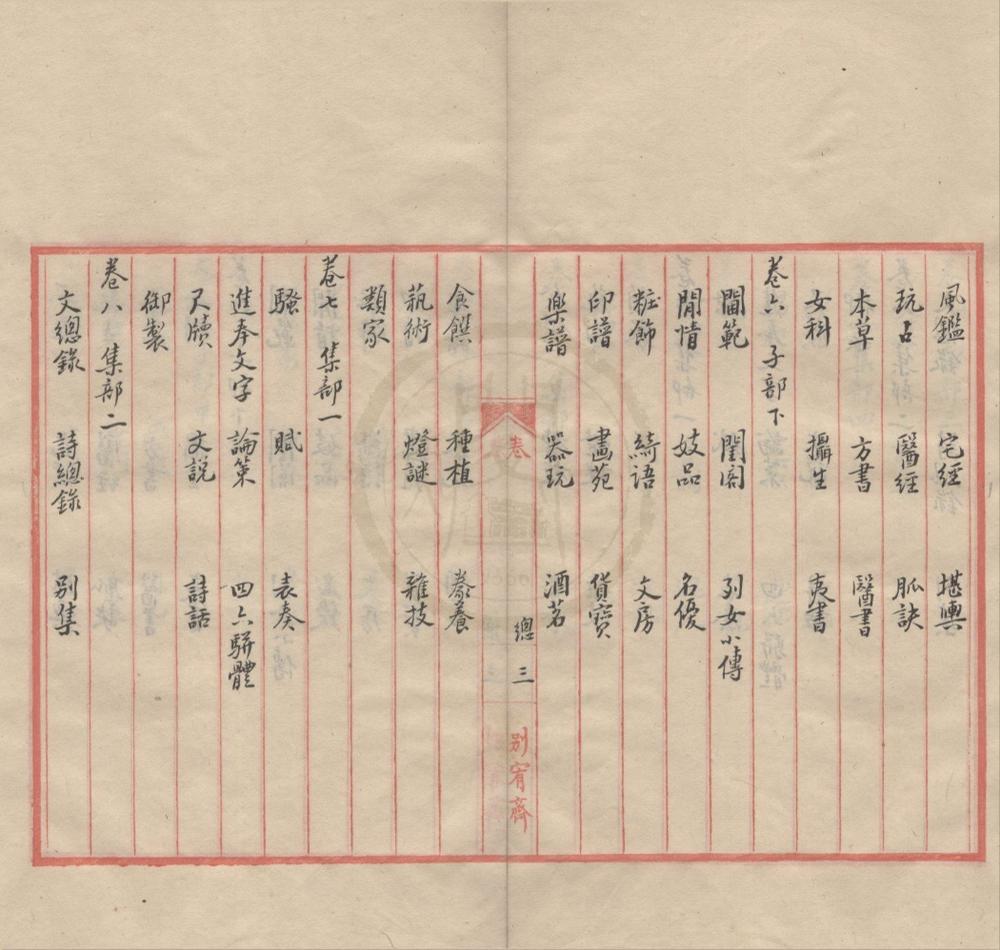 風鑑 宅經 堪輿
玩占 醫經 脈訣
本草 方書 醫書
女科 攝生 夷書
卷六 子部下
閫範 閨閣 列女小傳
閒情 妓品 名優
粧飾 綺語 文房
印譜 畫苑 貨寶
樂譜 器玩 酒茗
卷
總 三
別宥齋
食饌 種植 豢養
蓺術 燈謎 雜技
類家
卷七 集部一
騷 賦 表奏
進奉文字 論策 四六駢體
尺牘 文説 詩話
御製
卷八 集部二
文總錄 詩總錄 別集